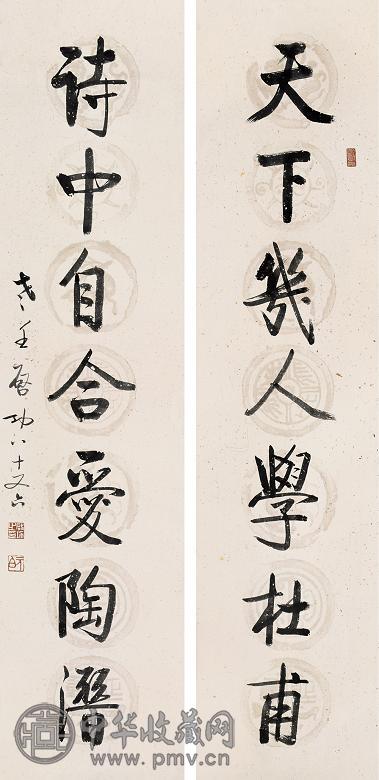 天下幾人學杜甫
詩中自合愛陶潛
啟功八十又六
中华收藏网
www.pmv.cn